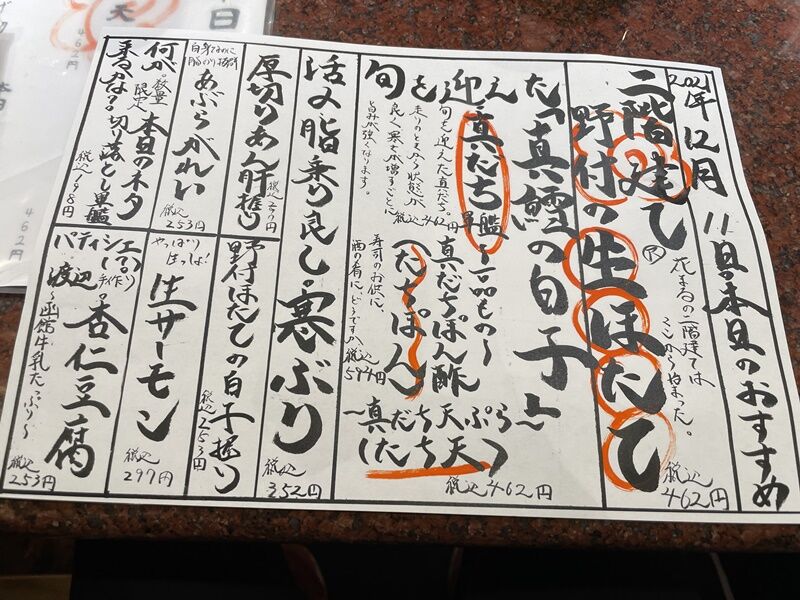 2021年12月11日・本日のおすすめ
二階建て
野付の生ほたて
花まるの二階建ては
ここから始まった。
税込
462円
旬を迎えた「真鱈の白子」
真だち軍艦
旬を迎えた真だち。
走りのときから状態が
良く寒さが増すごとに
旨みが強くなります。
税込462円
～一品もの～
真だちぽん酢
(たちぽん)
寿司のお供に、
酒の肴に、どうですか
税込
594円
～真だち天ぷら～
(たち天)
税込462円
活〆脂乗り良し・寒ぶり
税込
352円
厚切りあん肝握り
税込297円
野付ほたての白子握り
税込
253円
白身なのに
脂がり抜群
あぶらがれい
税込
253円
やっぱり
生っしょ!
生サーモン
税込
297円
何が
乗るかな?
数量
限定
本日のネタ
切り落とし軍艦
税込198円
パティシエ
渡辺
手作り
杏仁豆腐
～函館牛乳たっぷり～
税込
253円
462円
462円